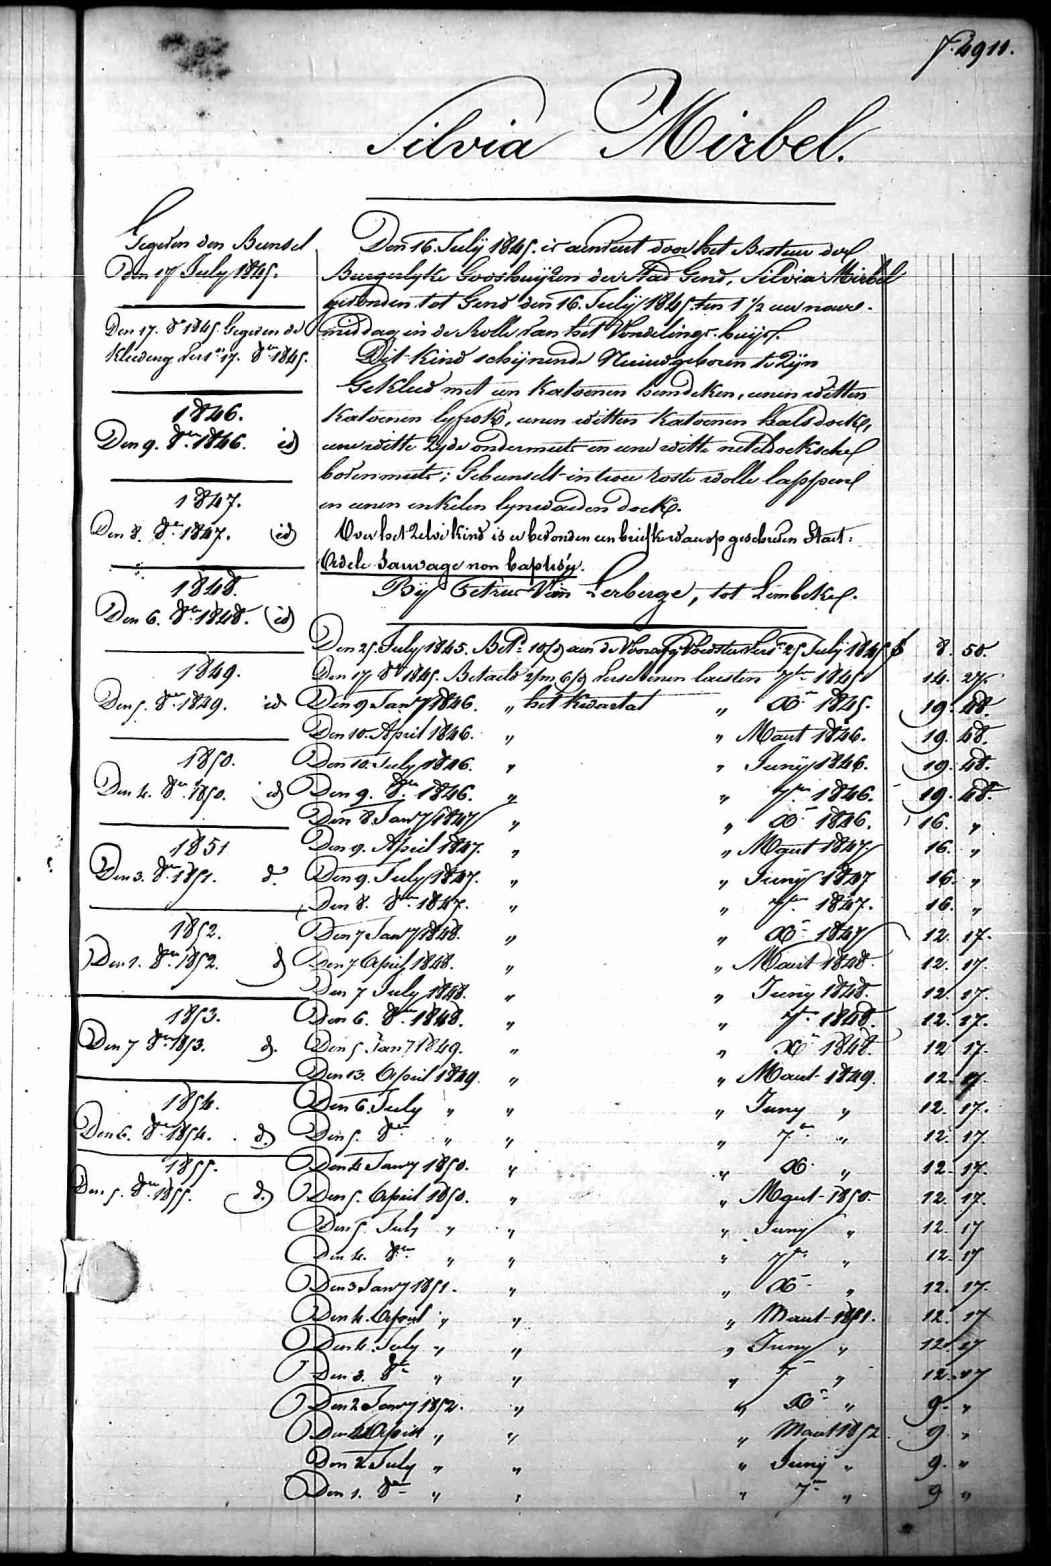 f. 4911.
Silvia Mirbel.
Gegeven den Bunsel
Den 17 July 1845.
Den 17. 8er 1845. Gegeven de
Kleeding 17. 8er 1845.
1846.
Den 9. 8er 1846. id
1847.
Den 8. 8er 1847. id
1848.
Den 6. 8er 1848. id
1849.
Den 5. 8er 1849. id
1850.
Den 4. 8er 1850. id
1851
Den 3. 8er 1851. d.
1852.
Den 1. 8er 1852. d
1853.
Den 7 8er 1853. d.
1854.
Den 6. 8er 1854. d.
1855.
Den 5. 8er 1855. d.
Den 16. July 1845. is aenveert door het Bestuer der
Burgerlyke Godshuyzen der Stad Gend, Silvia Mirbel
gevonden tot Gend den 16. July 1845 ten 1 1/2 ure naer-
middag in de Rolle van het Vondelings-huys.
Dit kind schynende Nieuwgeboren te zyn
Gekleed met een katoenen hemdeken, eenen witten
katoenen lyfrok, eenen witten katoenen halsdoek,
eene witte zyde ondermuts en eene witte neteldoeksche
bovenmuts; Gebunselt in twee roste wolle lappen
en eenen enkelen lynwaeden doek.
Over het zelve kind is er bevonden een briefken waerop geschreven staet:
Adele Sauvage non baptisé.
By Petrus Van Lerberge, tot Lembeke.
Den 25 July 1845. Bet. aen de 25 July 1845 f 8. 50.
Den 17 8er 1845. Betaeld 2/m 6/d verschenen laesten 7er 1845 14. 27
Den 9 Jany 1846. " het kwartael " Xer 1845. 19. 48.
Den 10. April 1846. " " Maert 1846. 19. 48.
Den 10. July 1846. " " Juny 1846. 19. 48.
Den 9. 8er 1846. " " 7er 1846. 19. 48.
Den 8 Jany 1847 " " Xer 1846. 16. "
Den 9. April 1847. " " Maert 1847 16. "
Den 9. July 1847. " " Juny 1847 16. "
Den 8. 8er 1847. " " 7er 1847. 16. "
Den 7 Jany 1848. " " Xer 1847 12. 17.
Den 7 April 1848. " " Maert 1848. 12. 17.
Den 7 July 1848. " " Juny 1848. 12. 17.
Den 6. 8er 1848. " " 7er 1848. 12. 17.
Den 5 Jany 1849. " " Xer 1848. 12 17.
Den 13. April 1849. " " Maert 1849. 12. 17.
Den 6. July " " " Juny " 12. 17.
Den 5. 8er " " " 7er " 12. 17
Den 4 Jany 1850. " " Xer " 12. 17.
Den 5. April 1850. " " Maert 1850 12. 17.
Den 5. July " " " Juny " 12. 17
Den 4. 8er " " " 7er " 12. 17
Den 3 Jany 1851. " " Xer " 12. 17.
Den 4. April " " " Maert 1851. 12. 17
Den 4. July " " " Juny " 12. 17
Den 3. 8er " " " 7er " 12. 17
Den 2 Jany 1852. " " Xer " 9. "
Den 2 April " " " Maert 1852 9. "
Den 2 July " " " Juny " 9. "
Den 1. 8er " " " 7er " 9 "